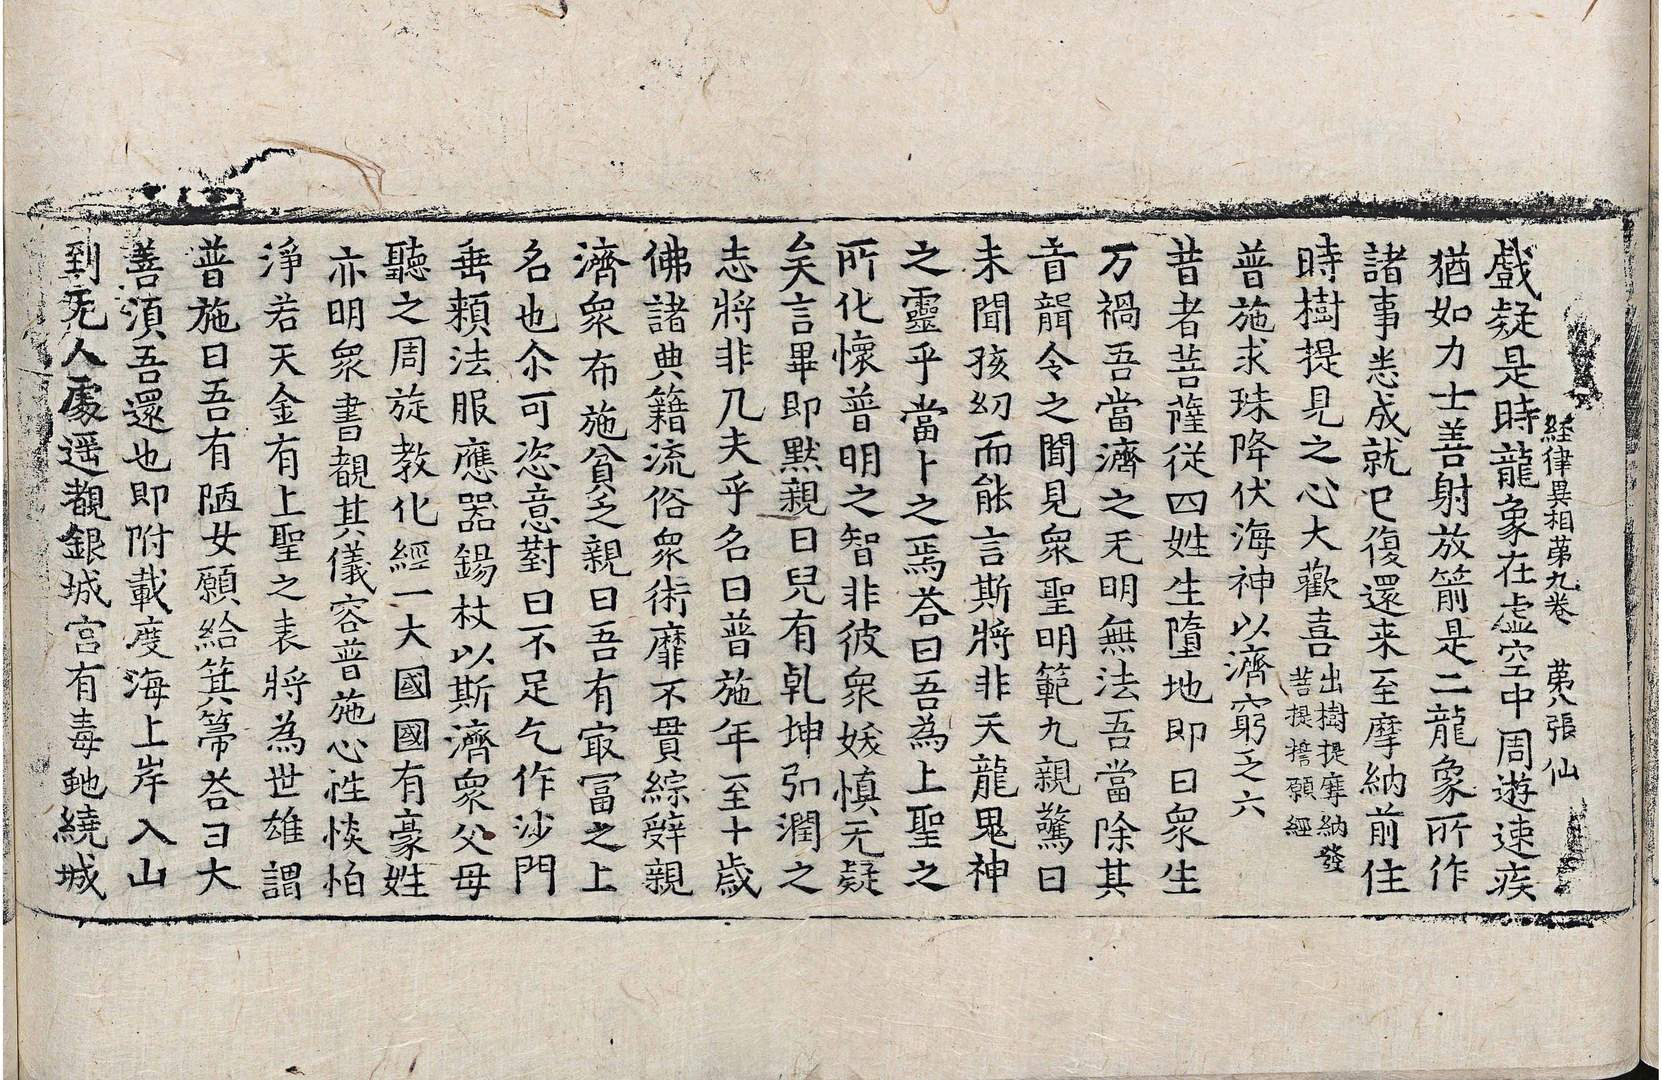 経律異相苐九卷　苐八張　仙
戲疑是時龍象在虛空中周遊速疾
猶如力士善射放箭是二龍象所作
諸事悉成就已復還来至摩納前住
時樹提見之心大歡喜出樹提摩納發菩提誓願經
普施求珠降伏海神以濟窮乏六
昔者菩薩從四姓生墮地即曰衆生
万禍吾當濟之无明無法吾當除其
盲聾令之聞見衆聖明範九親驚曰
未聞孩幼而能言斯將非天龍鬼神
之靈乎當卜之焉荅曰吾為上聖之
所化懷普明之智非彼衆妖慎无疑
矣言畢即默親曰兒有乹坤弘潤之
志將非凡夫乎名曰普施年至十歲
佛諸典籍流俗衆術靡不貫綜辤親
濟衆布施貧乏親曰吾有冣冨之上
名也尒可恣意對曰不足乞作沙門
垂頼法服應器錫杖以斯濟衆父母
聽之周旋教化經一大國國有豪姓
亦明衆書覩其儀容普施心性惔怕
淨若天金有上聖之表將為世雄謂
普施曰吾有陋女願給箕箒荅曰大
善湏吾還也即附載度海上岸入山
到无人處遥覩銀城宫有毒虵繞城